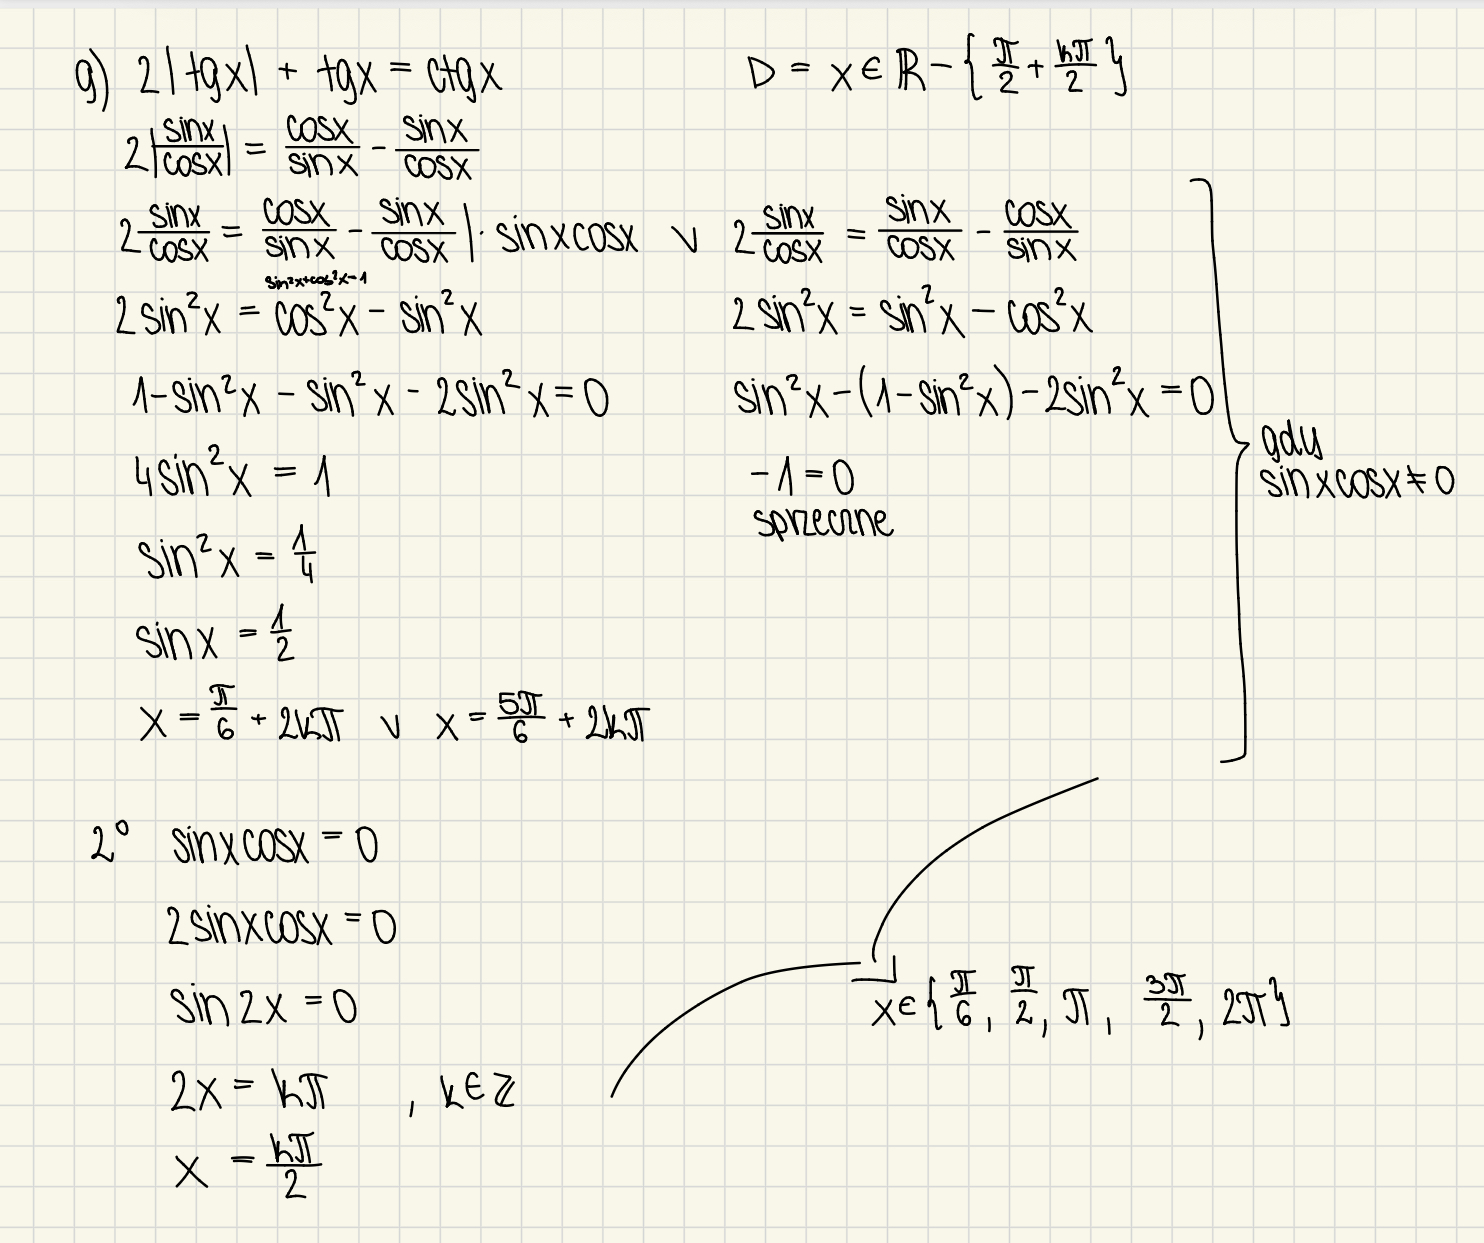 g) 2|tgx| + tgx = ctgx    D = x∈ℝ−{π/2 + kπ/2}
2|sinx/cosx| = cosx/sinx − sinx/cosx
2 sinx/cosx = cosx/sinx − sinx/cosx |· sinxcosx ∨ 2 sinx/cosx = sinx/cosx − cosx/sinx
sin²x+cos²x=1
2sin²x = cos²x − sin²x    2sin²x = sin²x − cos²x
1−sin²x − sin²x − 2sin²x = 0    sin²x−(1−sin²x)−2sin²x = 0
gdy
4sin²x = 1    −1 = 0    sinxcosx ≠ 0
sprzeczne
sin²x = 1/4
sinx = 1/2
x = π/6 + 2kπ ∨ x = 5π/6 + 2kπ
2° sinxcosx = 0
2sinxcosx = 0
sin2x = 0    x∈{π/6, π/2, π, 3π/2, 2π}
2x = kπ , k∈ℤ
x = kπ/2